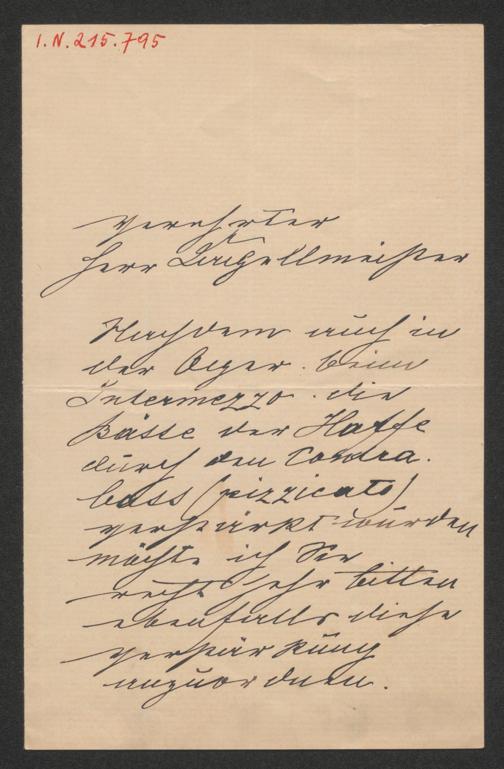 I.N. 215.795
Verehrter
Herr Kapellmeister
Nachdem auch in
der Oper beim
Intermezzo die
Bässe der Harfe
durch den Contra.
bass (pizzicato)
verstärkt wurden
möchte ich Sie
recht sehr bitten
ebenfalls diese
Verstärkung
anzuordnen.